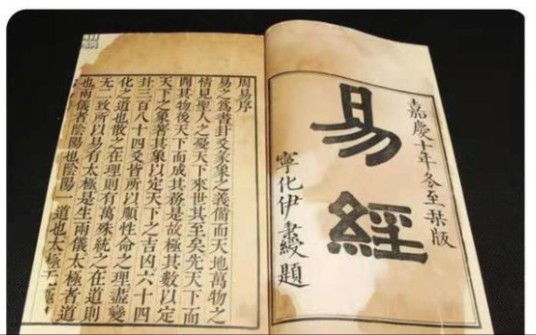 嘉慶十年冬至栞版
易經
寧化伊秉綬題
周易序
易之為書卦爻彖象之義備而天地萬物之
情見聖人之憂天下來世其至矣先天下而
開其物後天下而成其務是故極其數以定
天下之象著其象以定天下之吉凶六十四
卦三百八十四爻皆所以順性命之理盡變
化之道也散之在理則有萬殊統之在道則
無二致所以易有太極是生兩儀太極者道
也兩儀者陰陽也陰陽一道也太極无極也